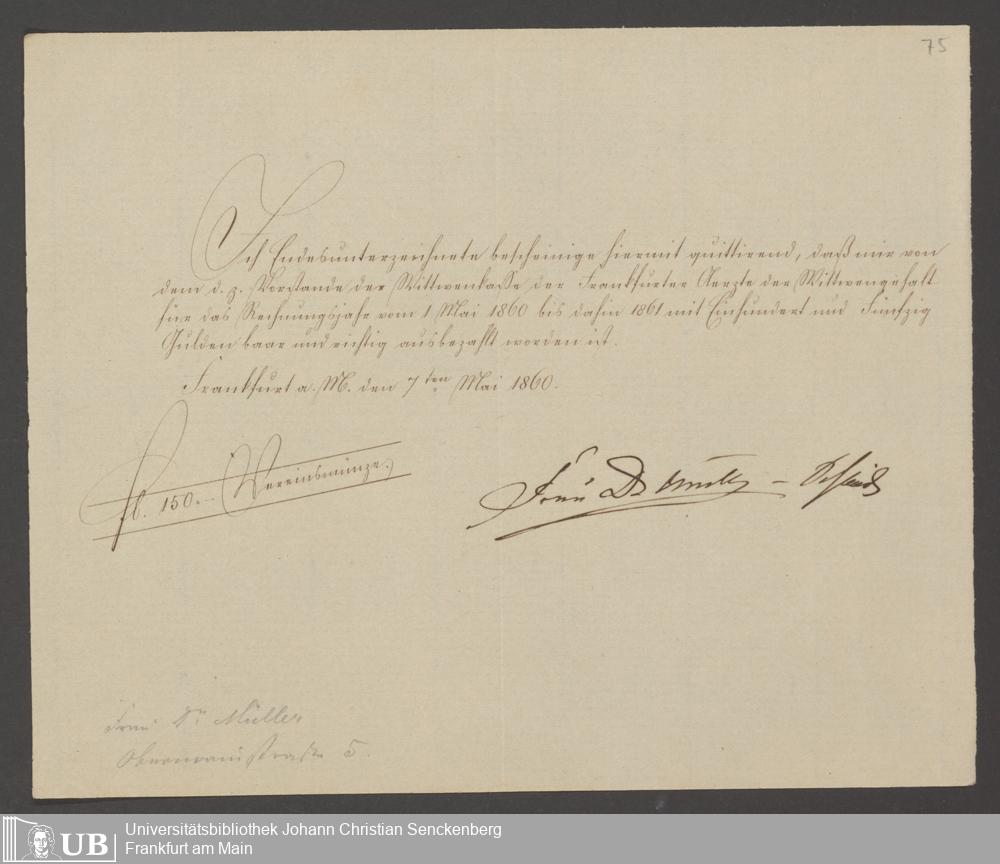 75
Ich Endesunterzeichnete bescheinige hiermit quittirend, daß mir von
dem d. z. Vorstande der Wittwenkasse der Frankfurter Aerzte der Wittwengehalt
für das Rechnungsjahr vom 1 Mai 1860 bis dahin 1861 mit Einhundert und Fünfzig
Gulden baar und richtig ausbezahlt worden ist.
Frankfurt a. M. den 7ten Mai 1860.
fl. 150.- (Vereinsmünze.)
Frau Dr Müller -
Frau Dr Müller
Obermainstraße 5.
UB Universitätsbibliothek Johann Christian Senckenberg
Frankfurt am Main